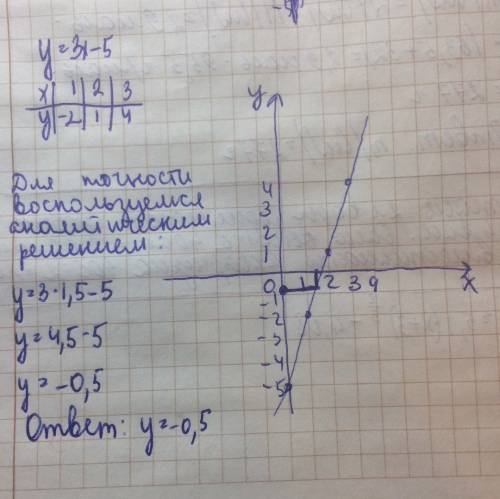 y=3x-5
x | 1 | 2 | 3
y | -2 | 1 | 4
Для точности
воспользуемся
аналитическим
решением:
y=3·1,5-5
y=4,5-5
y=-0,5
Ответ: y=-0,5
y
4
3
2
1
0 1 2 3 4 x
-1
-2
-3
-4
-5